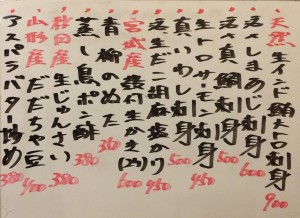 天然 生インド鮪トロ刺身 900
活〆しまあじ刺身 600
活〆真鯛刺身 500
生トロサーモン刺身 450
真いわし刺身 500
活生だこ胡麻塩かり 450
宮城産 殻付生かき(2ケ) 600
青柳のぬた 380
蒸し鳥ポン酢 380
秋田産 生じゅんさい 380
山形産 だだちゃ豆 400
アスパラバター炒め 380